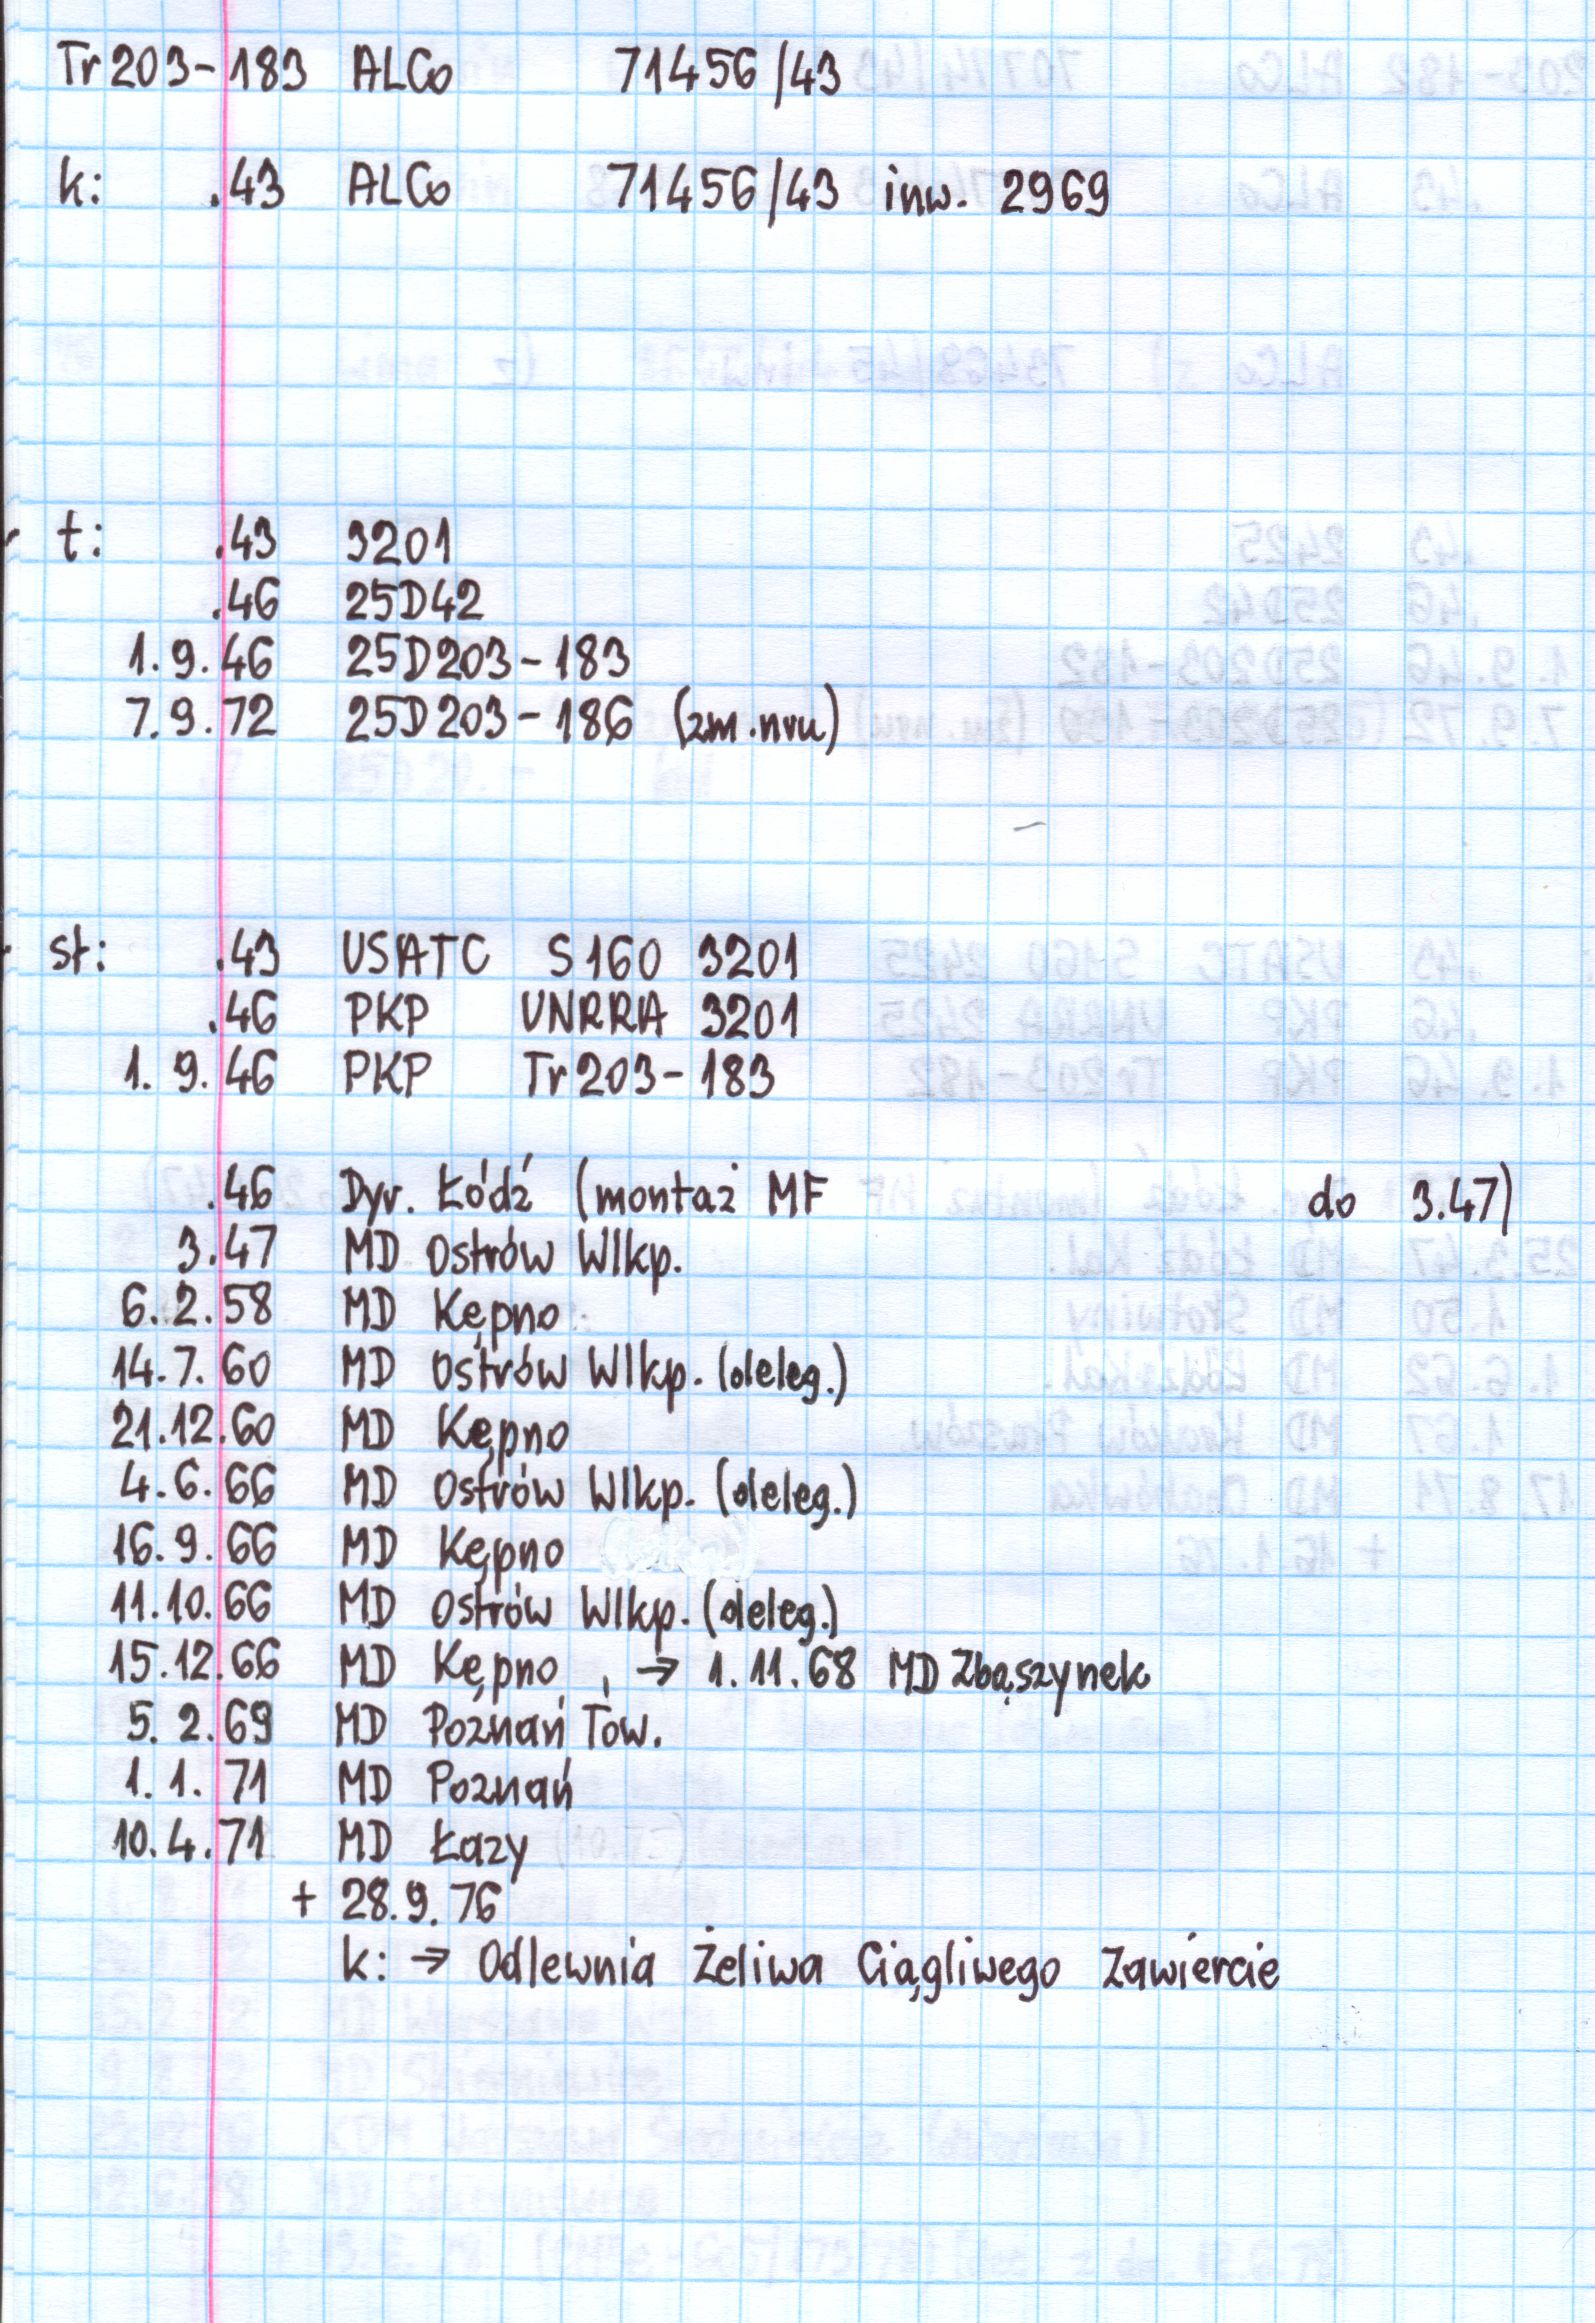 Tr203-183 ALCo 71456/43
k: .43 ALCo 71456/43 inw. 2969
t: .43 3201
.46 25D42
1.9.46 25D203-183
7.9.72 25D203-186 (zm.nru)
st: .43 USATC S160 3201
.46 PKP UNRRA 3201
1.9.46 PKP Tr203-183
.46 Dyr. Łódź (montaż MF do 3.47)
3.47 MD Ostrów Wlkp.
6.2.58 MD Kępno
14.7.60 MD Ostrów Wlkp. (deleg.)
21.12.60 MD Kępno
4.6.66 MD Ostrów Wlkp. (deleg.)
16.9.66 MD Kępno
11.10.66 MD Ostrów Wlkp. (deleg.)
15.12.66 MD Kępno , → 1.11.68 MD Zbąszynek
5.2.69 MD Poznań Tow.
1.1.71 MD Poznań
10.4.71 MD Łazy
+ 28.9.76
k: → Odlewnia Żeliwa Ciągliwego Zawiercie